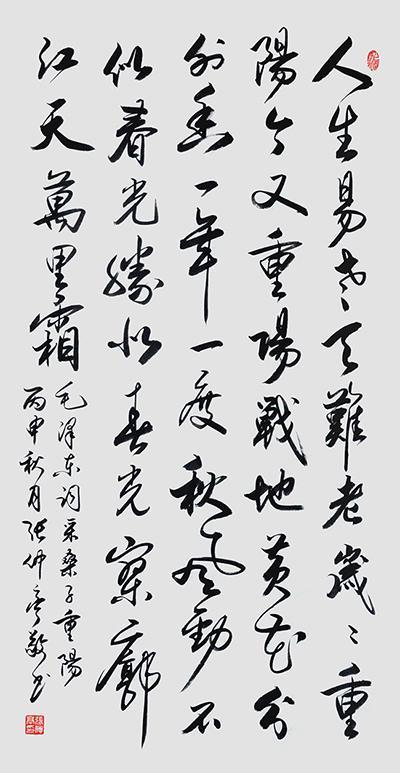 人生易老天難老歲々重
陽今又重陽戰地黃花分
外香一年一度秋風勁不
似春光勝似春光寥廓
江天萬里霜
毛澤東詞采桑子重陽
丙申秋月張仲亭敬書